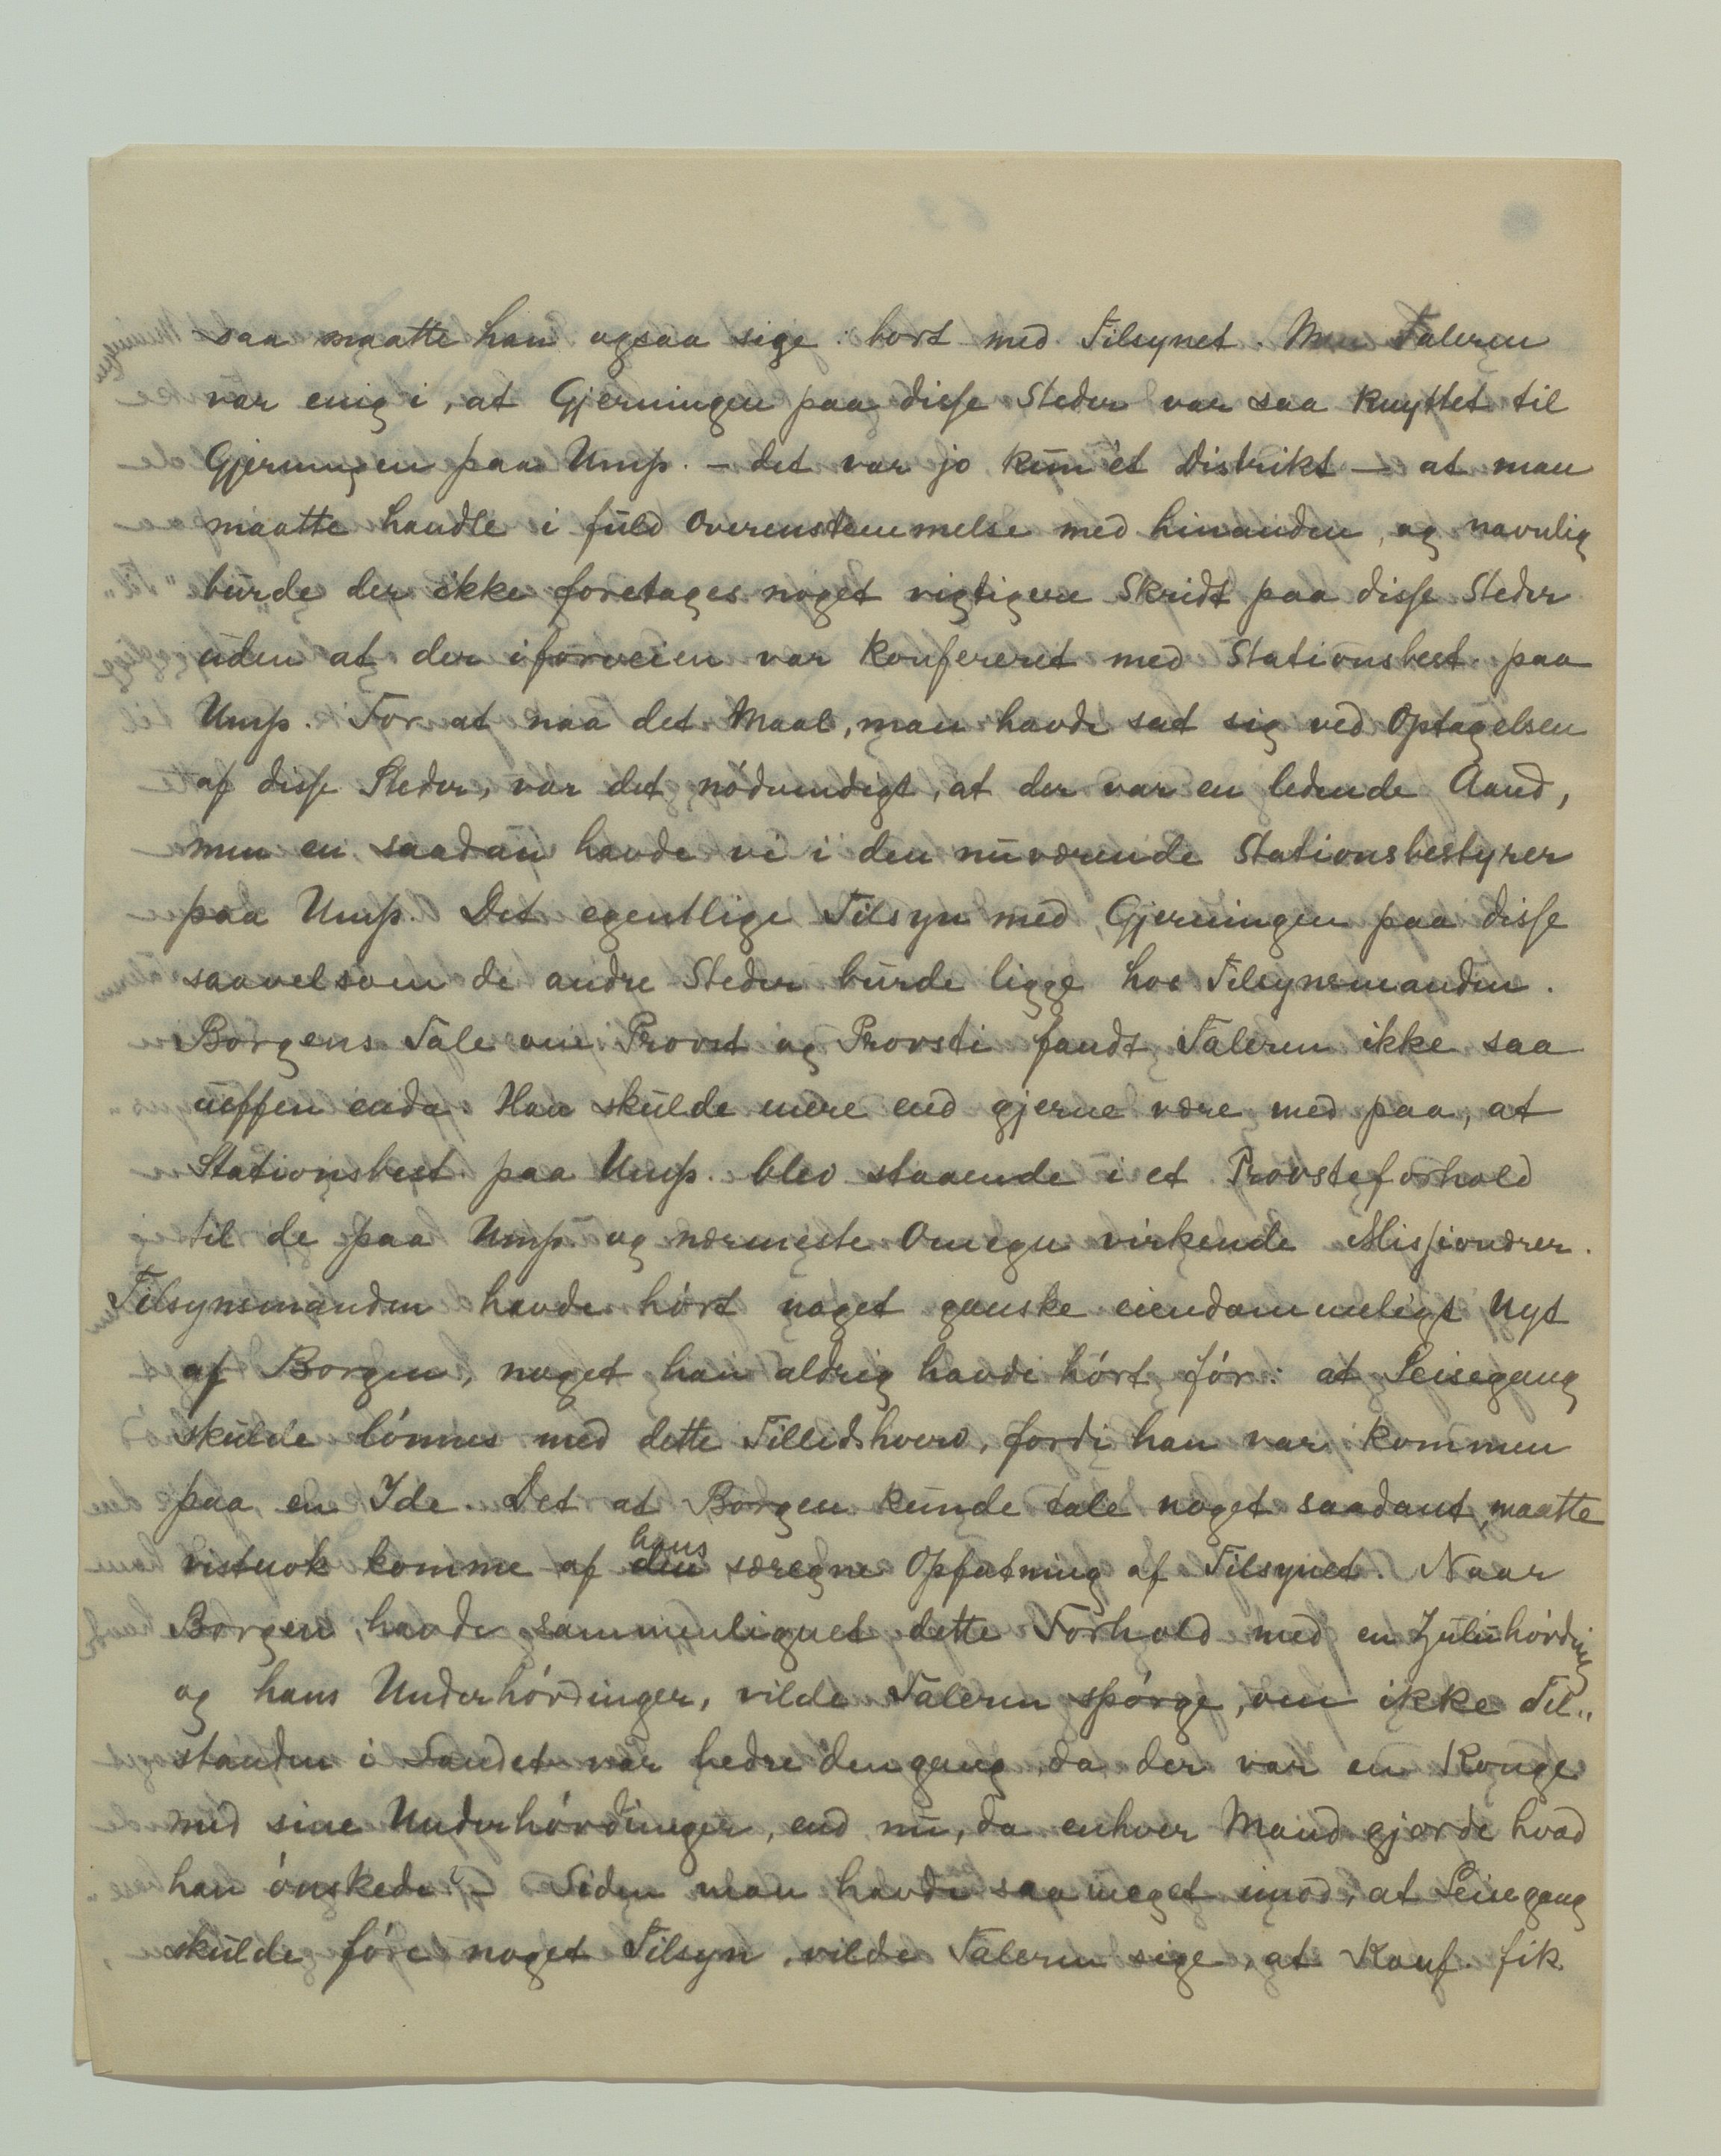 saa maatte han ogsaa sige: bort med Tilsynet. Men Taleren
var enig i, at Gjerningen paa disse Steder var saa knyttet til
Gjerningen paa Ump. – det var jo kun ét Distrikt – at man
maatte handle i fuld Overenstemmelse med hinanden, og navnlig
burde der ikke foretages noget vigtigere Skridt paa disse Steder
uden at der iforveien var konfereret med Stationsbest. paa
Ump. For at naa det Maal, man havde sat sig ved Optagelsen
af disse Steder, var det nódvendigt, at der var en ledende Aand,
men en saadan havde vi i den nuværende Stationsbestyrer
paa Ump. Det egentlige Tilsyn med Gjerningen paa disse
saavelsom de andre Steder burde ligge hos Tilsynsmanden.
Borgens Tale om Provst og Provsti fandt Taleren ikke saa
ueffen enda. Han skulde mere end gjerne være med paa, at
Stationsbest paa Ump. blev staaende i et Provsteforhold
til de paa Ump. og nærmeste Omegn virkende Missionærer.
Tilsynsmanden havde hórt noget ganske eiendommeligt Nyt
af Borgen, noget han aldrig havde hórt fór: at Leisegang
skulde lónnes med dette Tillidshverv, fordi han var kommen
paa en Ide. Det at Borgen kunde tale noget saadant, maatte
vistnok komme af den hans særegne Opfatning af Tilsynet. Naar
Borgen havde sammenlignet dette Forhold med en Zuluhórding
og hans Underhórdinger, vilde Taleren spórge, om ikke Til„
standen i Landet var bedre dengang da der var en Konge
med sine Underhórdinger, end nu, da enhver Mand gjorde hvad
han ónskede? – Siden man havde saa meget imod, at Leisegang
skulde fóre noget Tilsyn, vilde Taleren sige, at Konf. fik